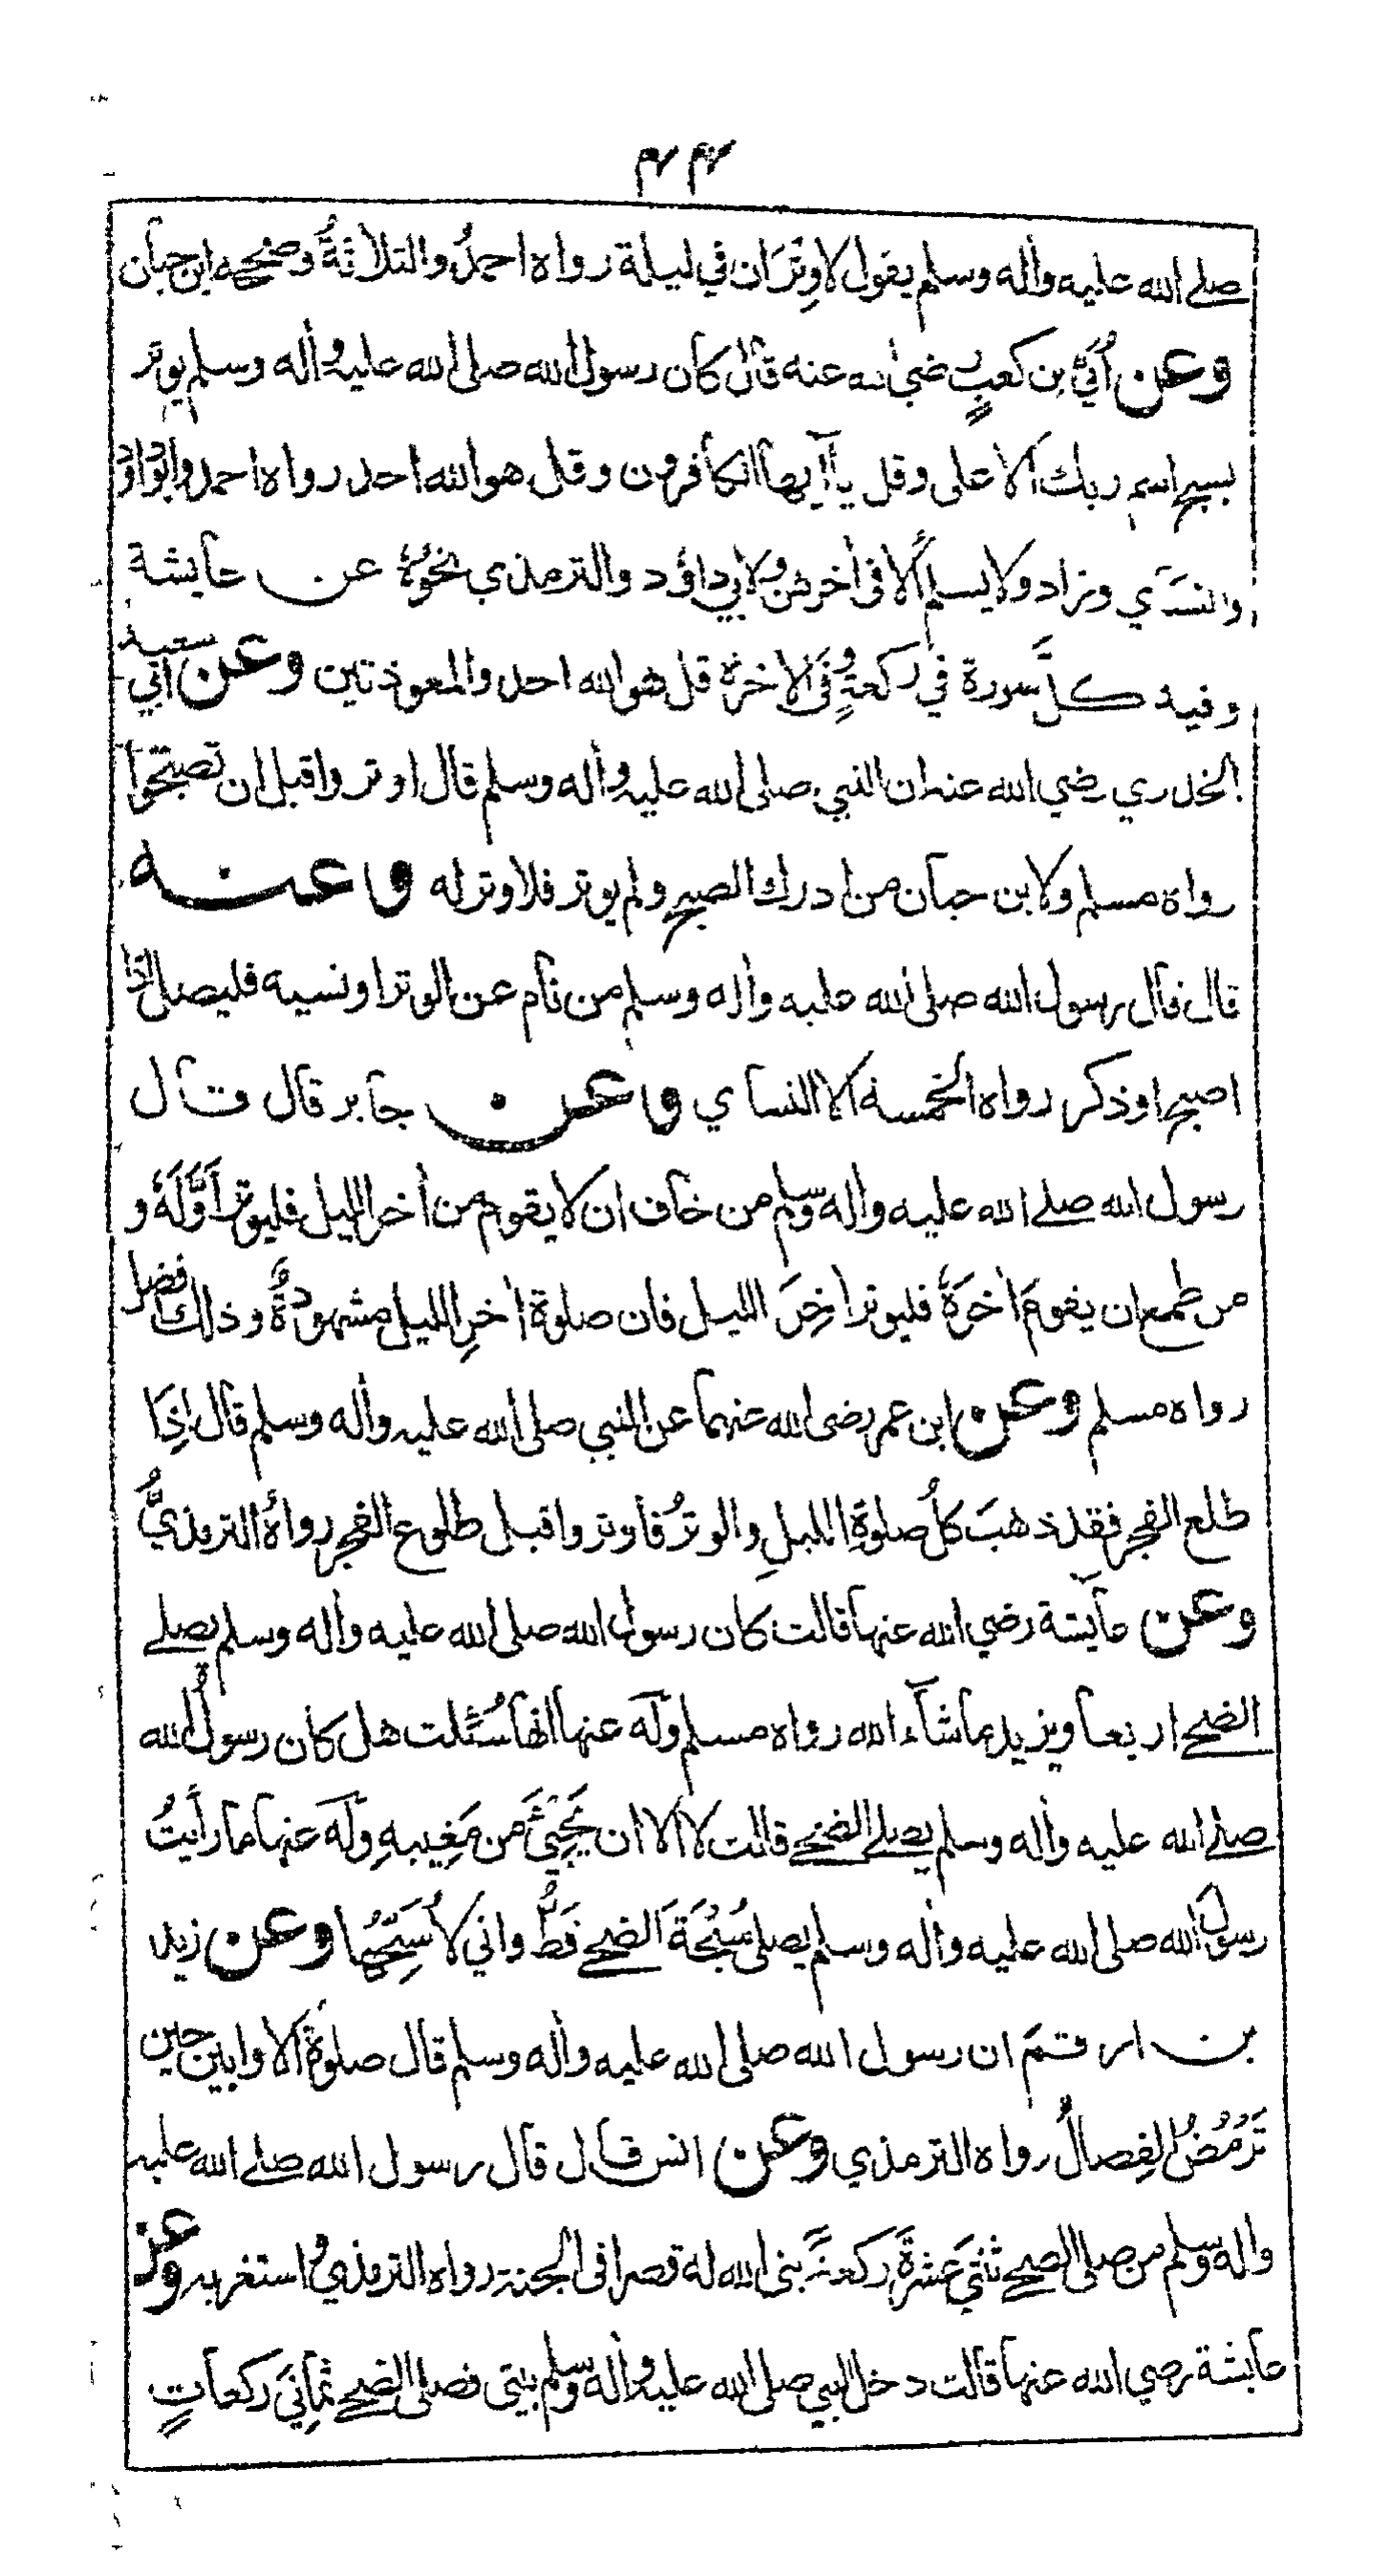 ۴۴
صلے الله عليه واٰله وسلم يقول لا وِتْرَان في ليلة رواه احمدُ والثلاثةُ وصححه ابن حبان
وعن اُبَيِّ بن كعبٍ رضي الله عنه قال كان رسول الله صلى الله عليه واٰله وسلم يوتر
بسبح اسم ربك الاعلى وقل يآ ايها الكافرون وقل هو الله احد رواه احمد وابوداود
والنسَآي وزاد ولا يسلم الا في اٰخرهن ولابي داؤد والترمذي نحوُهُ عن عايشة
وفيه كلَّ سورة في ركعةٍ وفي الاخرة قل هو الله احد والمعوذتين وعن ابي سعيد
الخدري رضي الله عنه ان النبي صلى الله عليه واٰله وسلم قال اوتروا قبل ان تصبحوا
رواه مسلم ولابن حبان من ادرك الصبح ولم يوتر فلا وتر له وعنه
قال قال رسول الله صلى الله عليه واٰله وسلم من نام عن الوتر او نسيه فليصل اذا
اصبح او ذكر رواه الخمسة الا النساي وعن جابر قال قال
رسول الله صلے الله عليه واٰله وسلم من خاف ان لا يقوم من اٰخر الليل فليوتر اَوَّلَهُ و
من طمع ان يقومَ اٰخرَهُ فليوتر اٰخِرَ الليل فان صلوة اٰخرِ الليل مشهودةٌ وذلك افضل
رواه مسلم وعن ابن عمر رضى الله عنهما عن النبي صلى الله عليه واٰله وسلم قال اِذَا
طلع الفجر فقد ذهبَ كلُّ صلوةِ الليلِ والوترُ فاوتروا قبل طلوع الفجر رواهُ الترمذيُّ
وعن عآيشة رضي الله عنها قالت كان رسول الله صلى الله عليه واٰله وسلم يصلے
الضحے اربعا ويزيد ما شآء الله رواه مسلم وله عنها انها سُئلت هل كان رسولُ الله
صلے الله عليه واٰله وسلم يصلے الضحے قالت لا الا ان يَجِيْئَ من مَغِيبهِ وله عنها ما رأيتُ
رسولَ الله صلى الله عليه واٰله وسلم يصلي سُبْحَةَ الضحے قَطُّ واني لاُسَبِّحُها وعن زيد
بن ارقم ان رسول الله صلى الله عليه واٰله وسلم قال صلوةُ الاوابين حين
تَرْمَضُ الفِصالُ رواه الترمذي وعن انس قال قال رسول الله صلے الله عليه
واٰله وسلم من صلى الضحے ثنتَي عَشْرَةَ ركعةً بنى الله له قصرا في الجنة رواه الترمذي واستغربه وعن
عايشة رضي الله عنها قالت دخل النبي صلى الله عليه واٰله وسلم بيتي فصلى الضحے ثمانِيَ ركعاتٍ